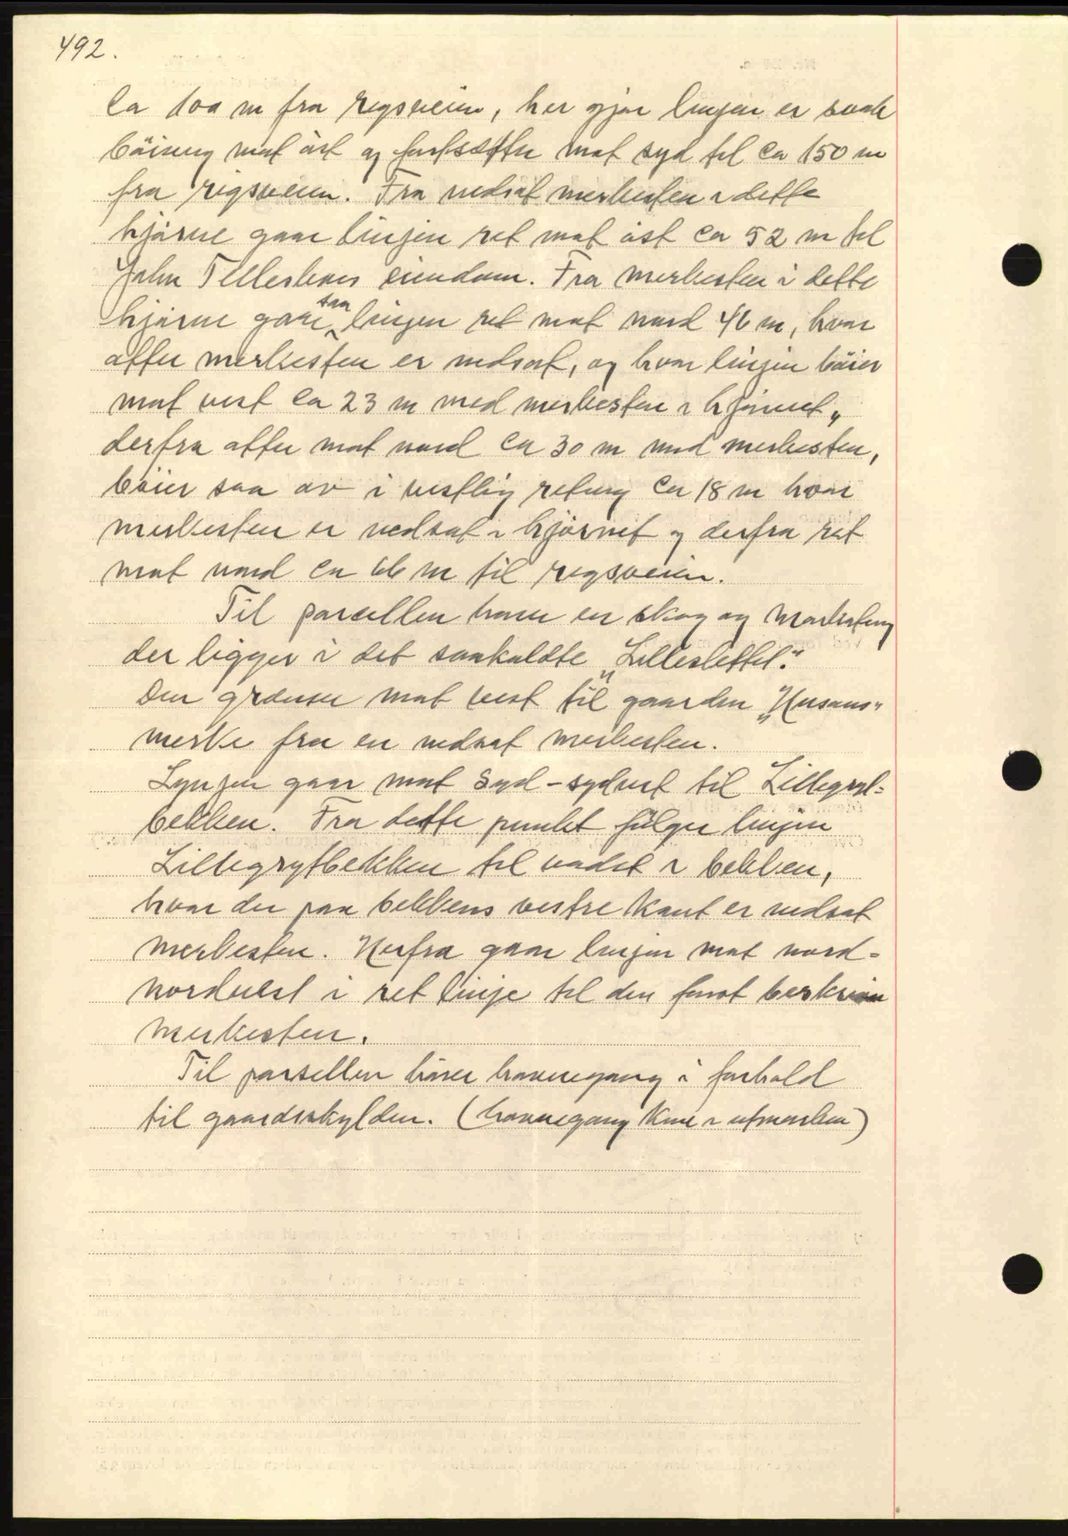 492.
Ca 100 m fra regsveien, her gjør linjen er svak
böining mot öst og fortsætter mot syd til ca 150 m
fra rigsveien. Fra nedsat merkesten i dette
hjörne gaar linjen ret mot öst ca 52 m til
John Tellesbøes eiendom. Fra merkesten i dette
hjörne gaar saa linjen ret mot nord 46 m, hvor
atter merkesten er nedsat, og hvor linjen böier
mot vest ca 23 m med merkesten i hjörnet,,
derfra atter mot nord ca 30 m med merkesten,
böier saa av i vestlig retning ca 18 m hvor
merkesten er nedsat i hjörnet og derfra ret
mot nord ca 66 m til regsveien.
Til parcellen hører en skog og
der ligger i det saakaldte „Lilleslettet".
Den grænser mot vest til gaarden „Husans"
merke fra en nedsat merkesten.
Lynjen gaar mot Syd-sydvest til Lillegryt=
bekken. Fra dette punkt fölger linjen
Lillegrytbekken til vadet i bekken,
hvor der paa bekkens vestre kant er nedsat
merkesten. Herfra gaar linjen mot nord=
nordvest i ret linje til den först
merkesten.
Til parsellen hörer havnegang i forhold
til gaardsskylden. (havnegang kun i utmarken)